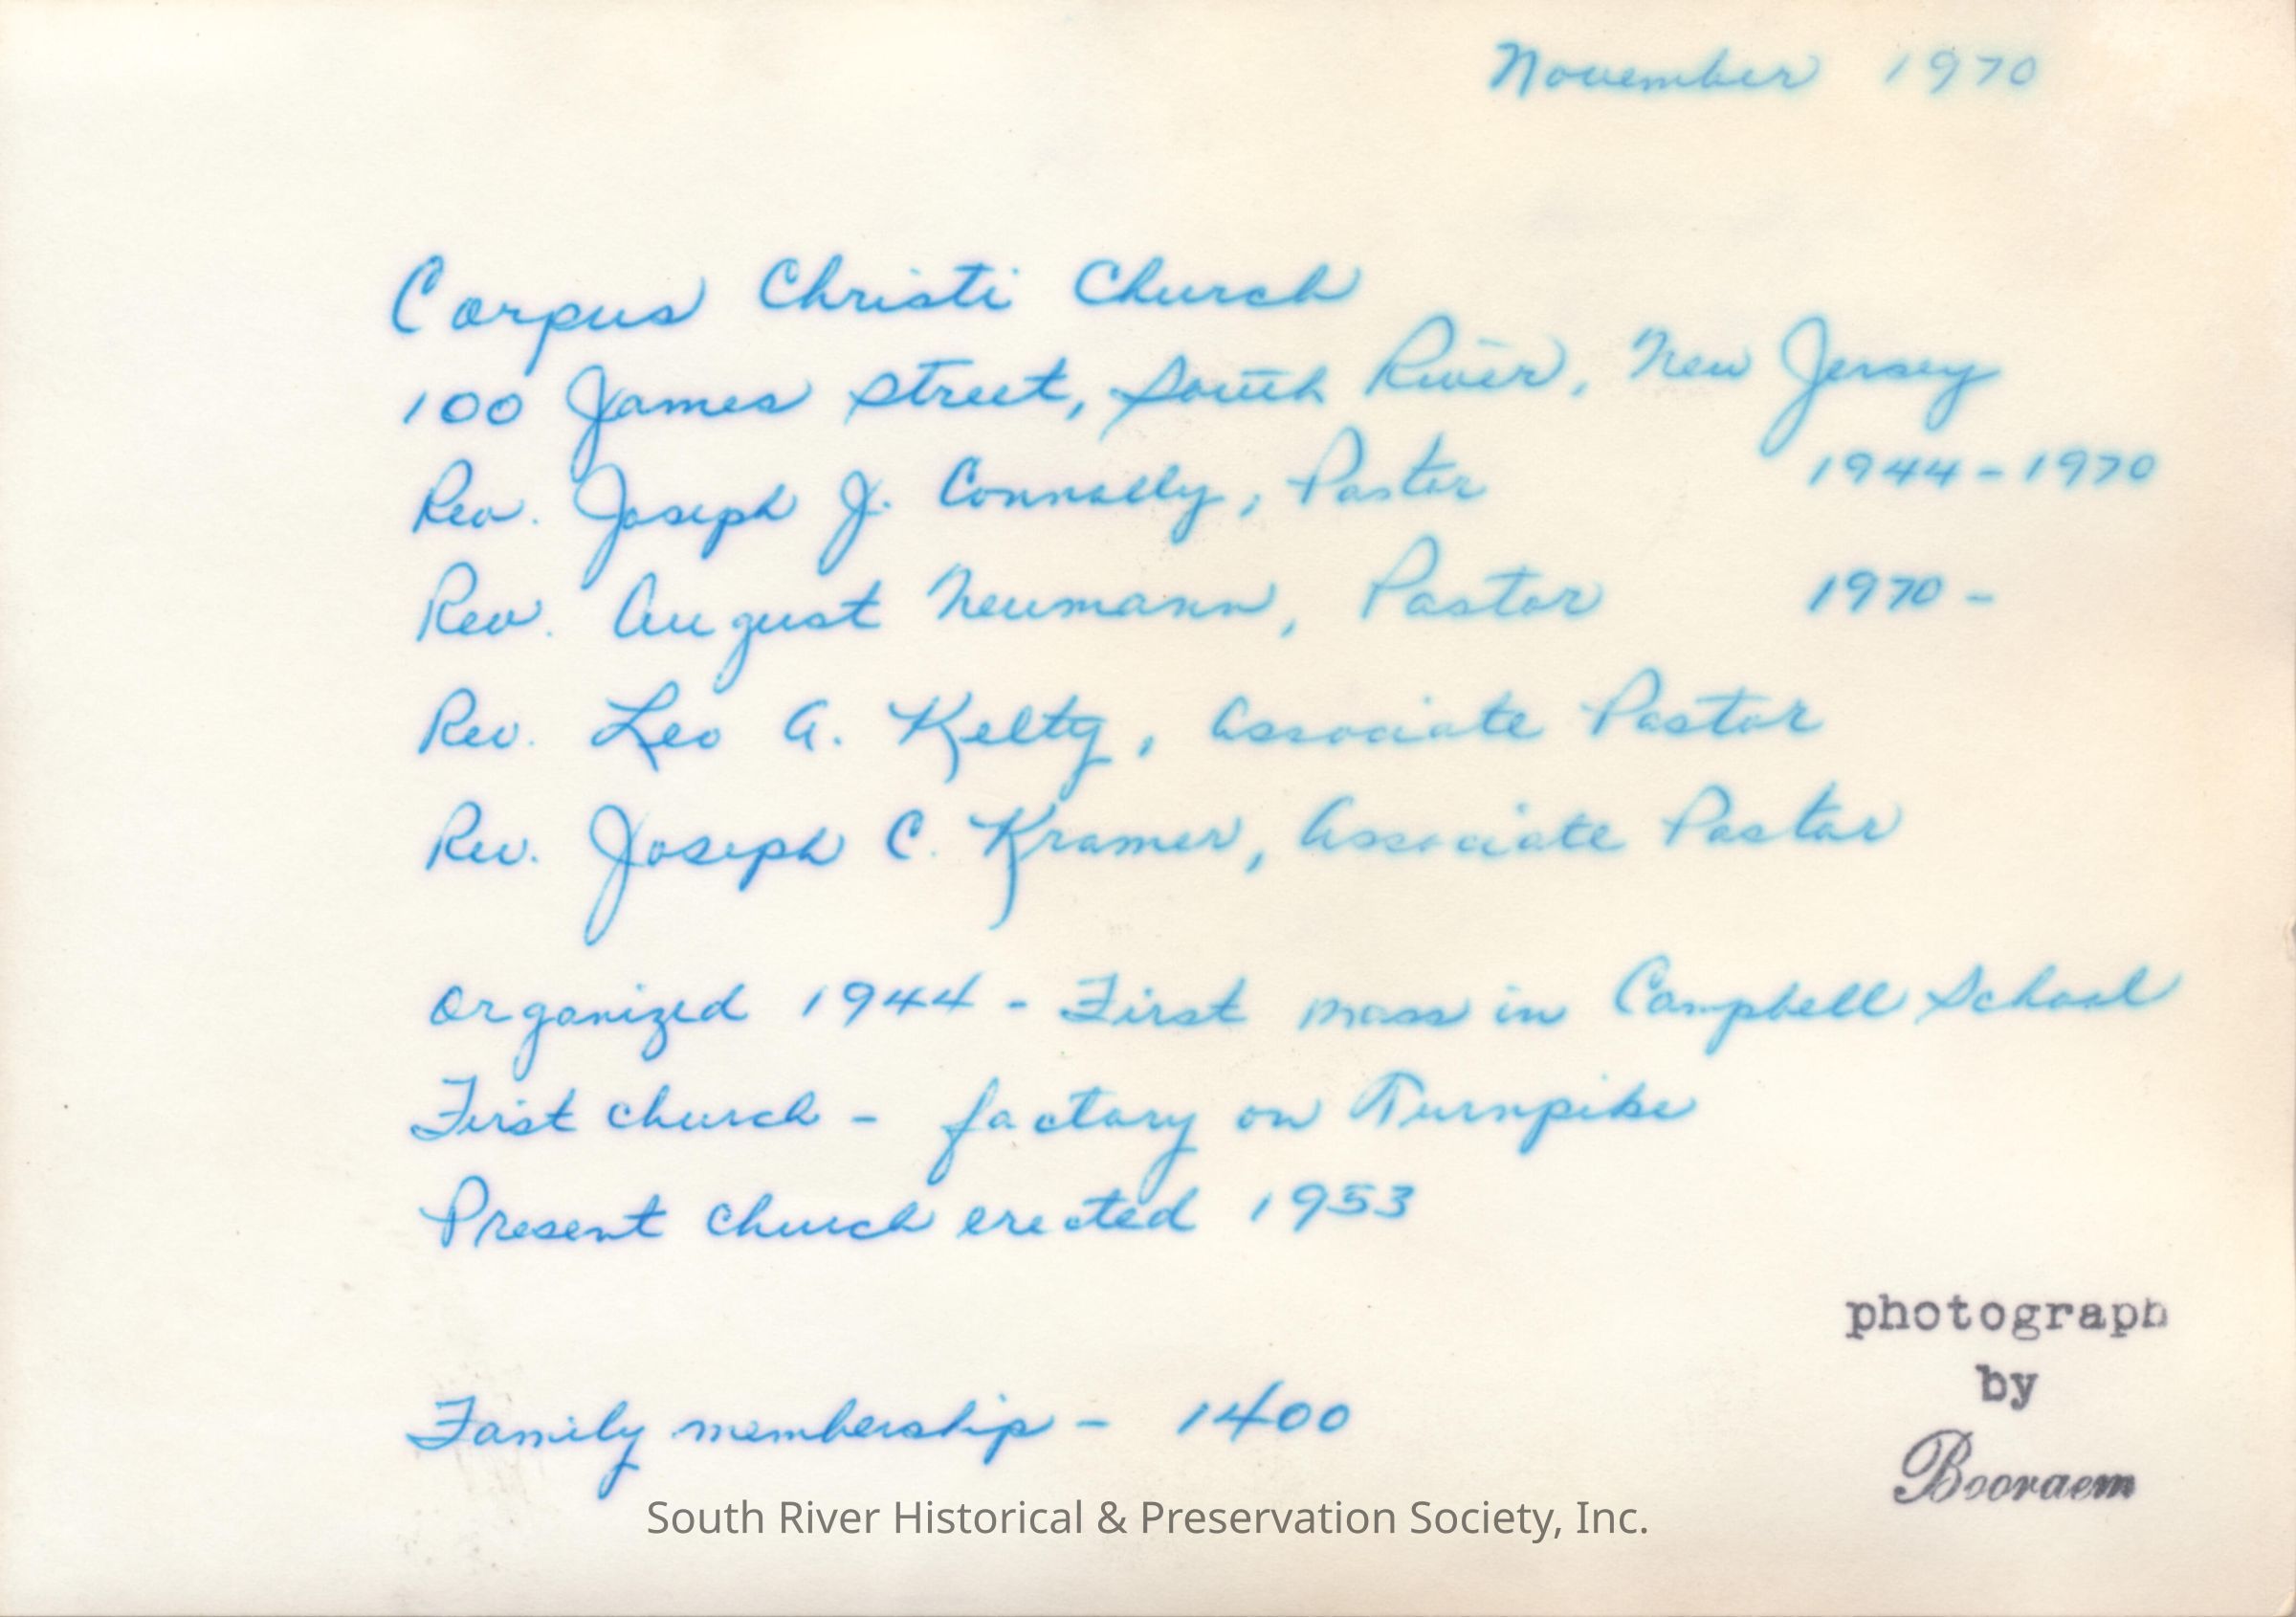 November 1970
Corpus Christi Church
100 James Street, South River, New Jersey
Rev. Joseph J. Connolly, Pastor 1944-1970
Rev. August Neumann, Pastor 1970-
Rev. Leo A. Kelty, Associate Pastor
Rev. Joseph C. Kramer, Associate Pastor
Organized 1944 - First mass in Campbell School
First church - factory on Turnpike
Present church erected 1953
Family membership - 1400
photograph
by
Booraem
South River Historical & Preservation Society, Inc.